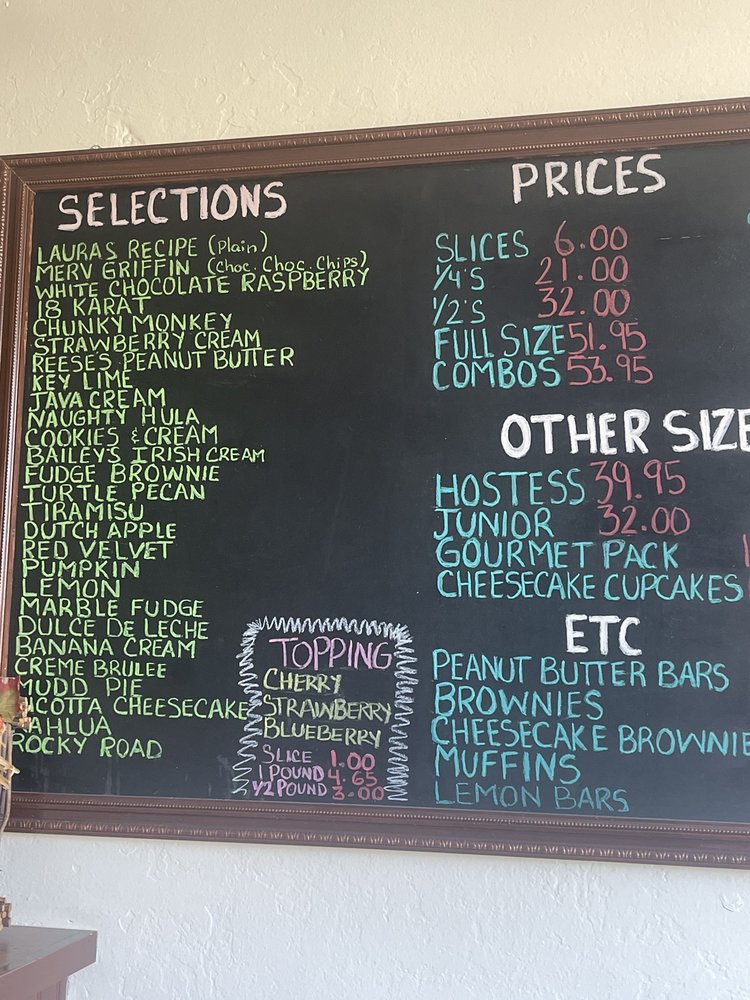 SELECTIONS
LAURAS RECIPE (Plain)
MERV GRIFFIN (Choc. Choc. Chips)
WHITE CHOCOLATE RASPBERRY
18 KARAT
CHUNKY MONKEY
STRAWBERRY CREAM
REESES PEANUT BUTTER
KEY LIME
JAVA CREAM
NAUGHTY HULA
COOKIES & CREAM
BAILEY'S IRISH CREAM
FUDGE BROWNIE
TURTLE PECAN
TIRAMISU
DUTCH APPLE
RED VELVET
PUMPKIN
LEMON
MARBLE FUDGE
DULCE DE LECHE
BANANA CREAM
CREME BRULEE
MUDD PIE
ICOTTA CHEESECAKE
AHLUA
ROCKY ROAD
TOPPING
CHERRY
STRAWBERRY
BLUEBERRY
SLICE 1.00
1 POUND 4.65
1/2 POUND 3.00
PRICES
SLICES 6.00
1/4'S 21.00
1/2'S 32.00
FULL SIZE 51.95
COMBOS 53.95
OTHER SIZE
HOSTESS 39.95
JUNIOR 32.00
GOURMET PACK
CHEESECAKE CUPCAKES
ETC
PEANUT BUTTER BARS
BROWNIES
CHEESECAKE BROWNIE
MUFFINS
LEMON BARS